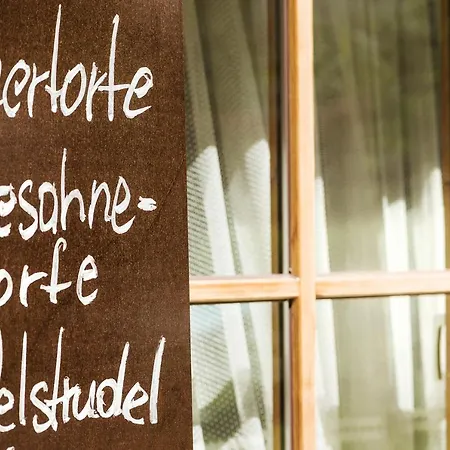 ertorte
esahne-
orte
elstrudel